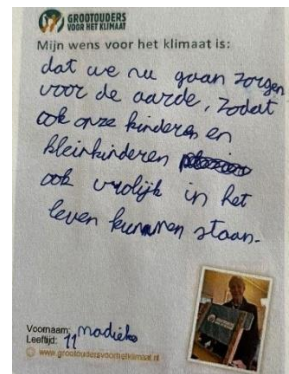 GROOTOUDERS
VOOR HET KLIMAAT
Mijn wens voor het klimaat is:
dat we nu gaan zorgen
voor de aarde, zodat
ook onze kinderen en
kleinkinderen
ook vrolijk in het
leven kunnen staan.
Voornaam: Madieke
Leeftijd: 11
www.grootoudersvoorhetklimaat.nl